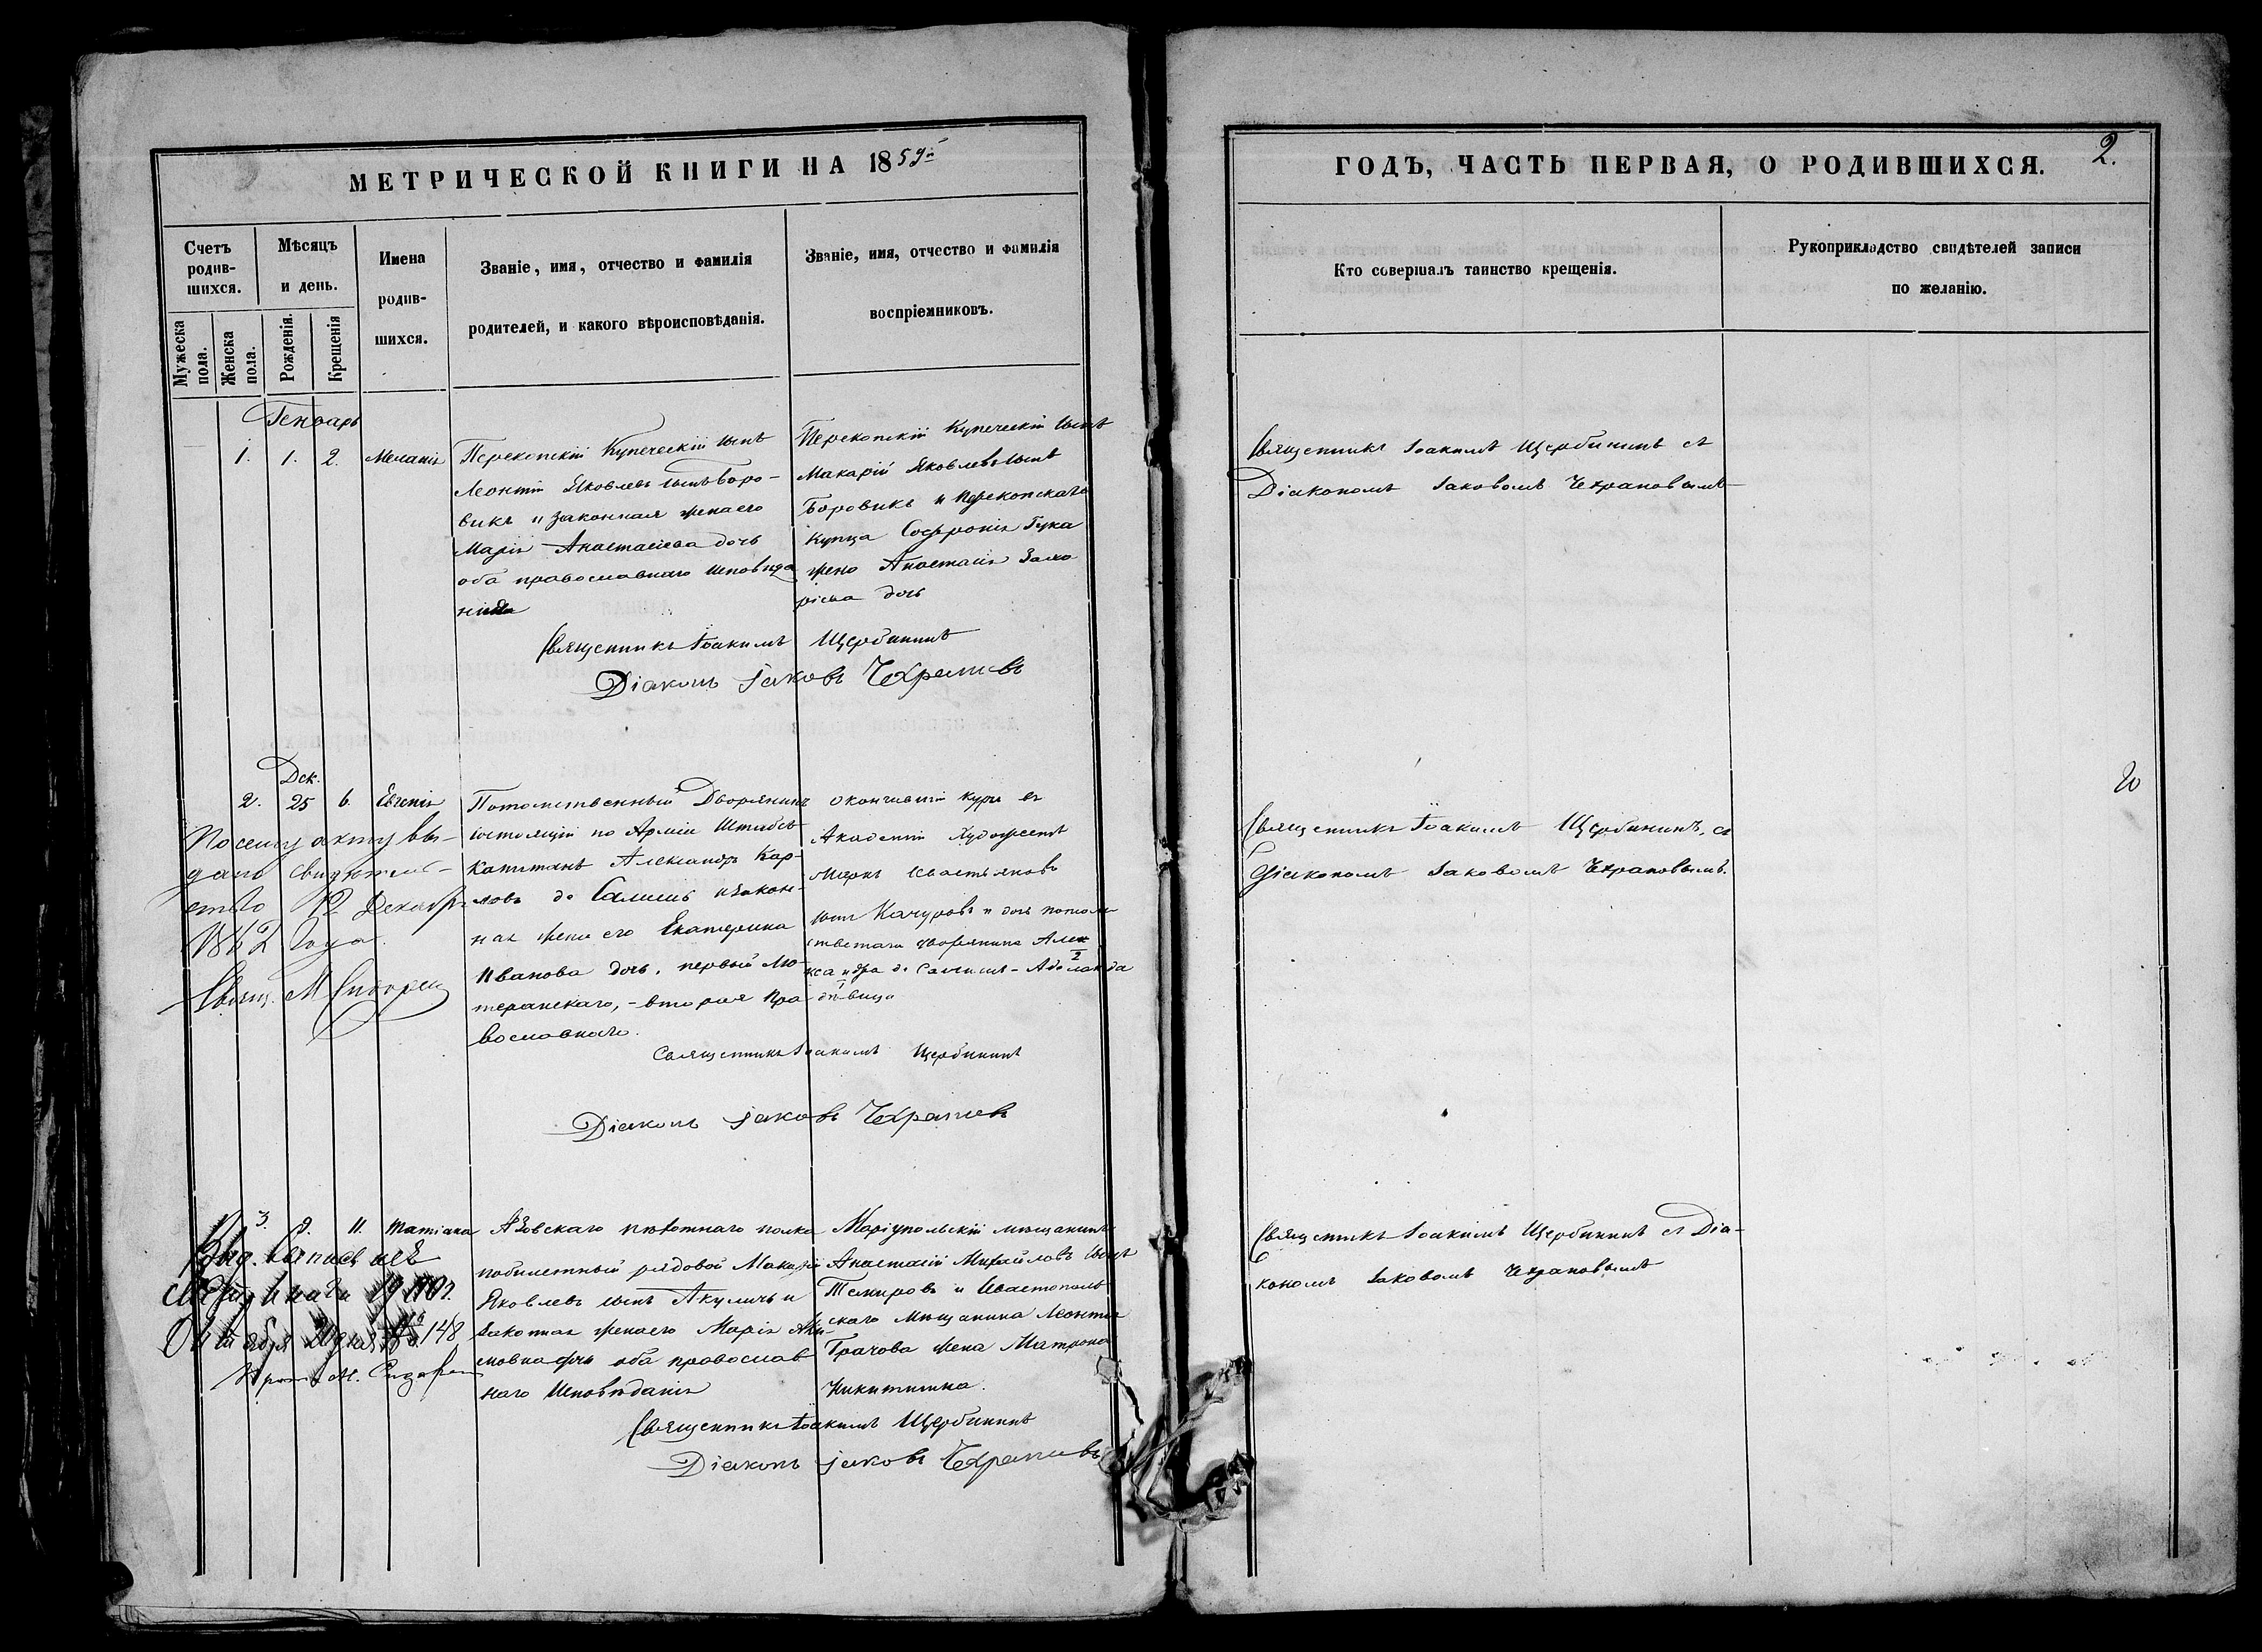 МЕТРИЧЕСКОЙ КНИГИ НА 1859й
Счетъ родив-шихся.
Мѣсяцъ и день.
Имена родив-шихся.
Званіе, имя, отчество и фамилія родителей, и какого вѣроисповѣданія.
Званіе, имя, отчество и фамилія воспріемниковъ.
Мужеска пола.
Женска пола.
Рожденія.
Крещенія
Генварь
1. 1. 2. Меланія
Перекопскій Купеческій сынъ
Леонтій Яковлевъ сынъ Боро-
викъ и законная жена его
Марія Анастасіева дочь
оба православнаго исповѣда
нія
Перекопскій Купеческій сынъ
Макарій Яковлевъ сынъ
Боровикъ и Перекопскаго
Купца Софронія Гука
жена Анастасія Заха
ріева дочь
Священникъ Іоакимъ Щербининъ
Діаконъ Іаковъ Чехрановъ
Дек.
2. 25 6. Евгенія
Потомственный Дворянинъ
состоящій по Арміи Штабсъ
Капитанъ Александръ Кар-
ловъ де и Закон-
ная жена его Екатерина
Иванова дочь, первый Лю-
теранскаго, - вторая Пра
вославнаго.
окончившій курсъ въ
Академіи Художествъ
Маркъ
сынъ Качуровъ и дочь потом
ственнаго дворянина Алек
сандра де - Аделаида
дѣвица
По сему акту вы-
дано свидѣтель-
ство 12 Декабря
года.
Свящ. М
Священникъ Іоакимъ Щербининъ
Діаконъ Іаковъ Чехрановъ
3. 8. 11. Татіана
Азовскаго пѣхотнаго полка
побилетный рядовой Макарій
Яковлевъ сынъ Акуличь и
законная жена его Марія
дочь оба православ
наго Исповѣданія
Маріупольскій мѣщанинъ
Анастасій Михайловъ сынъ
Темировъ и Севастополь
скаго Мѣщанина Леонтія
Грачова жена Матрона
Никитишна.
Выд.
148
Прот. М.
Священникъ Іоакимъ Щербининъ
Діаконъ Іаковъ Чехрановъ
ГОДЪ, ЧАСТЬ ПЕРВАЯ, О РОДИВШИХСЯ.
2.
Кто совершалъ таинство крещенія.
Рукоприкладство свидѣтелей записи по желанію.
Священникъ Іоакимъ Щербининъ съ
Діакономъ Іаковомъ Чехрановымъ
Священникъ Іоакимъ Щербининъ, съ
Діакономъ Іаковомъ Чехрановымъ.
Священникъ Іоакимъ Щербининъ съ Діа-
кономъ Іаковомъ Чехрановымъ